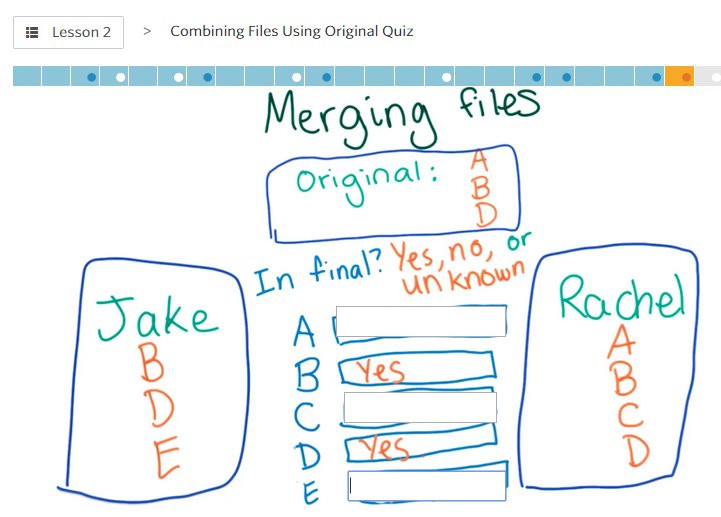 Lesson 2 > Combining Files Using Original Quiz
Merging files
Original: A
B
D
In final? Yes, no, or
unknown
Jake
B
D
E
A
B Yes
C
D Yes
E
Rachel
A
B
C
D